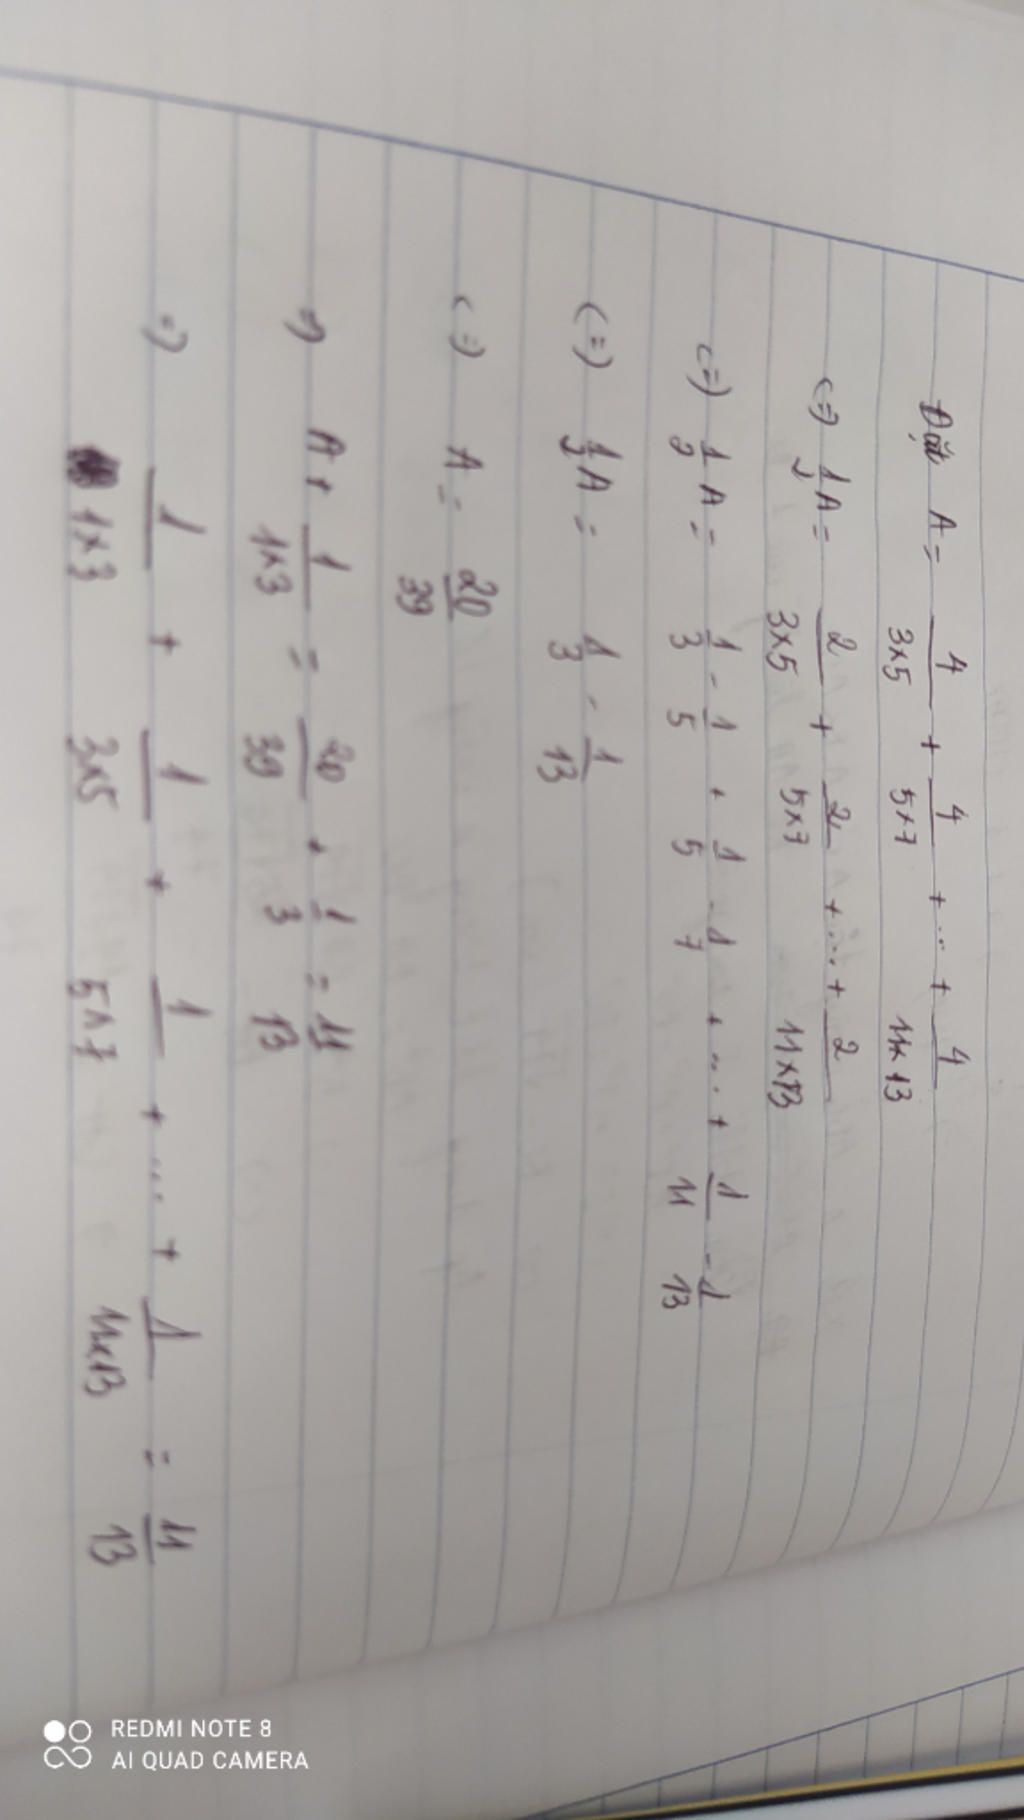 Đặt A = 4/3×5 + 4/5×7 + ... + 4/11×13
(=) 1/2 A = 2/3×5 + 2/5×7 + ... + 2/11×13
(=) 1/2 A = 1/3 - 1/5 + 1/5 - 1/7 + ... + 1/11 - 1/13
(=) 1/2 A = 1/3 - 1/13
(=) A = 20/39
=) A + 1/1×3 = 20/39 + 1/3 = 11/13
=) 1/1×3 + 1/3×5 + 1/5×7 + ... + 1/11×13 = 11/13
REDMI NOTE 8
AI QUAD CAMERA